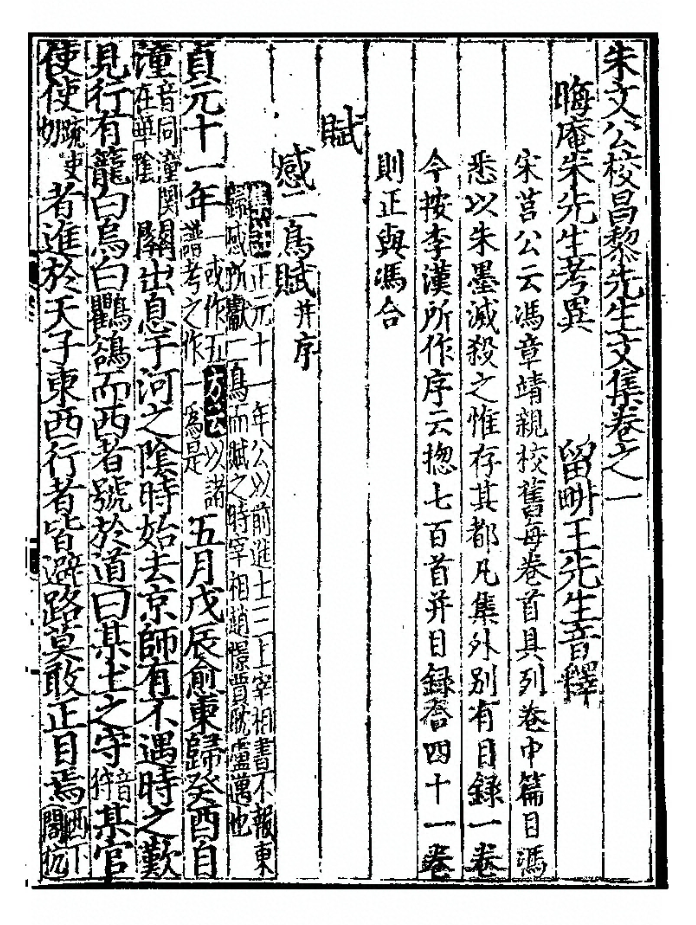 朱文公校昌黎先生文集卷之一
晦庵朱先生考異 留畊王先生音釋
宋莒公云馮章靖親校舊每卷首具列卷中篇目馮
悉以朱墨滅殺之惟存其都凡集外別有目録一卷
今按李漢所作序云揔七百首并目録合四十一卷
則正與馮合
賦
感二鳥賦并序
正元十一年公以前進士三上宰相書不報東
歸感所獻二鳥而賦之時宰相趙憬賈耽盧邁也
貞元十一年一或作五方云以諸譜考之作一爲是五月戊辰愈東歸癸酉自
潼音同潼関在華陰關出息于河之陰時始去京師有不遇時之歎
見行有籠白烏白鸜鵒而西者號於道曰某土之守音狩某官
使使疏吏切者進於天子東西行者皆避路莫敢正目焉